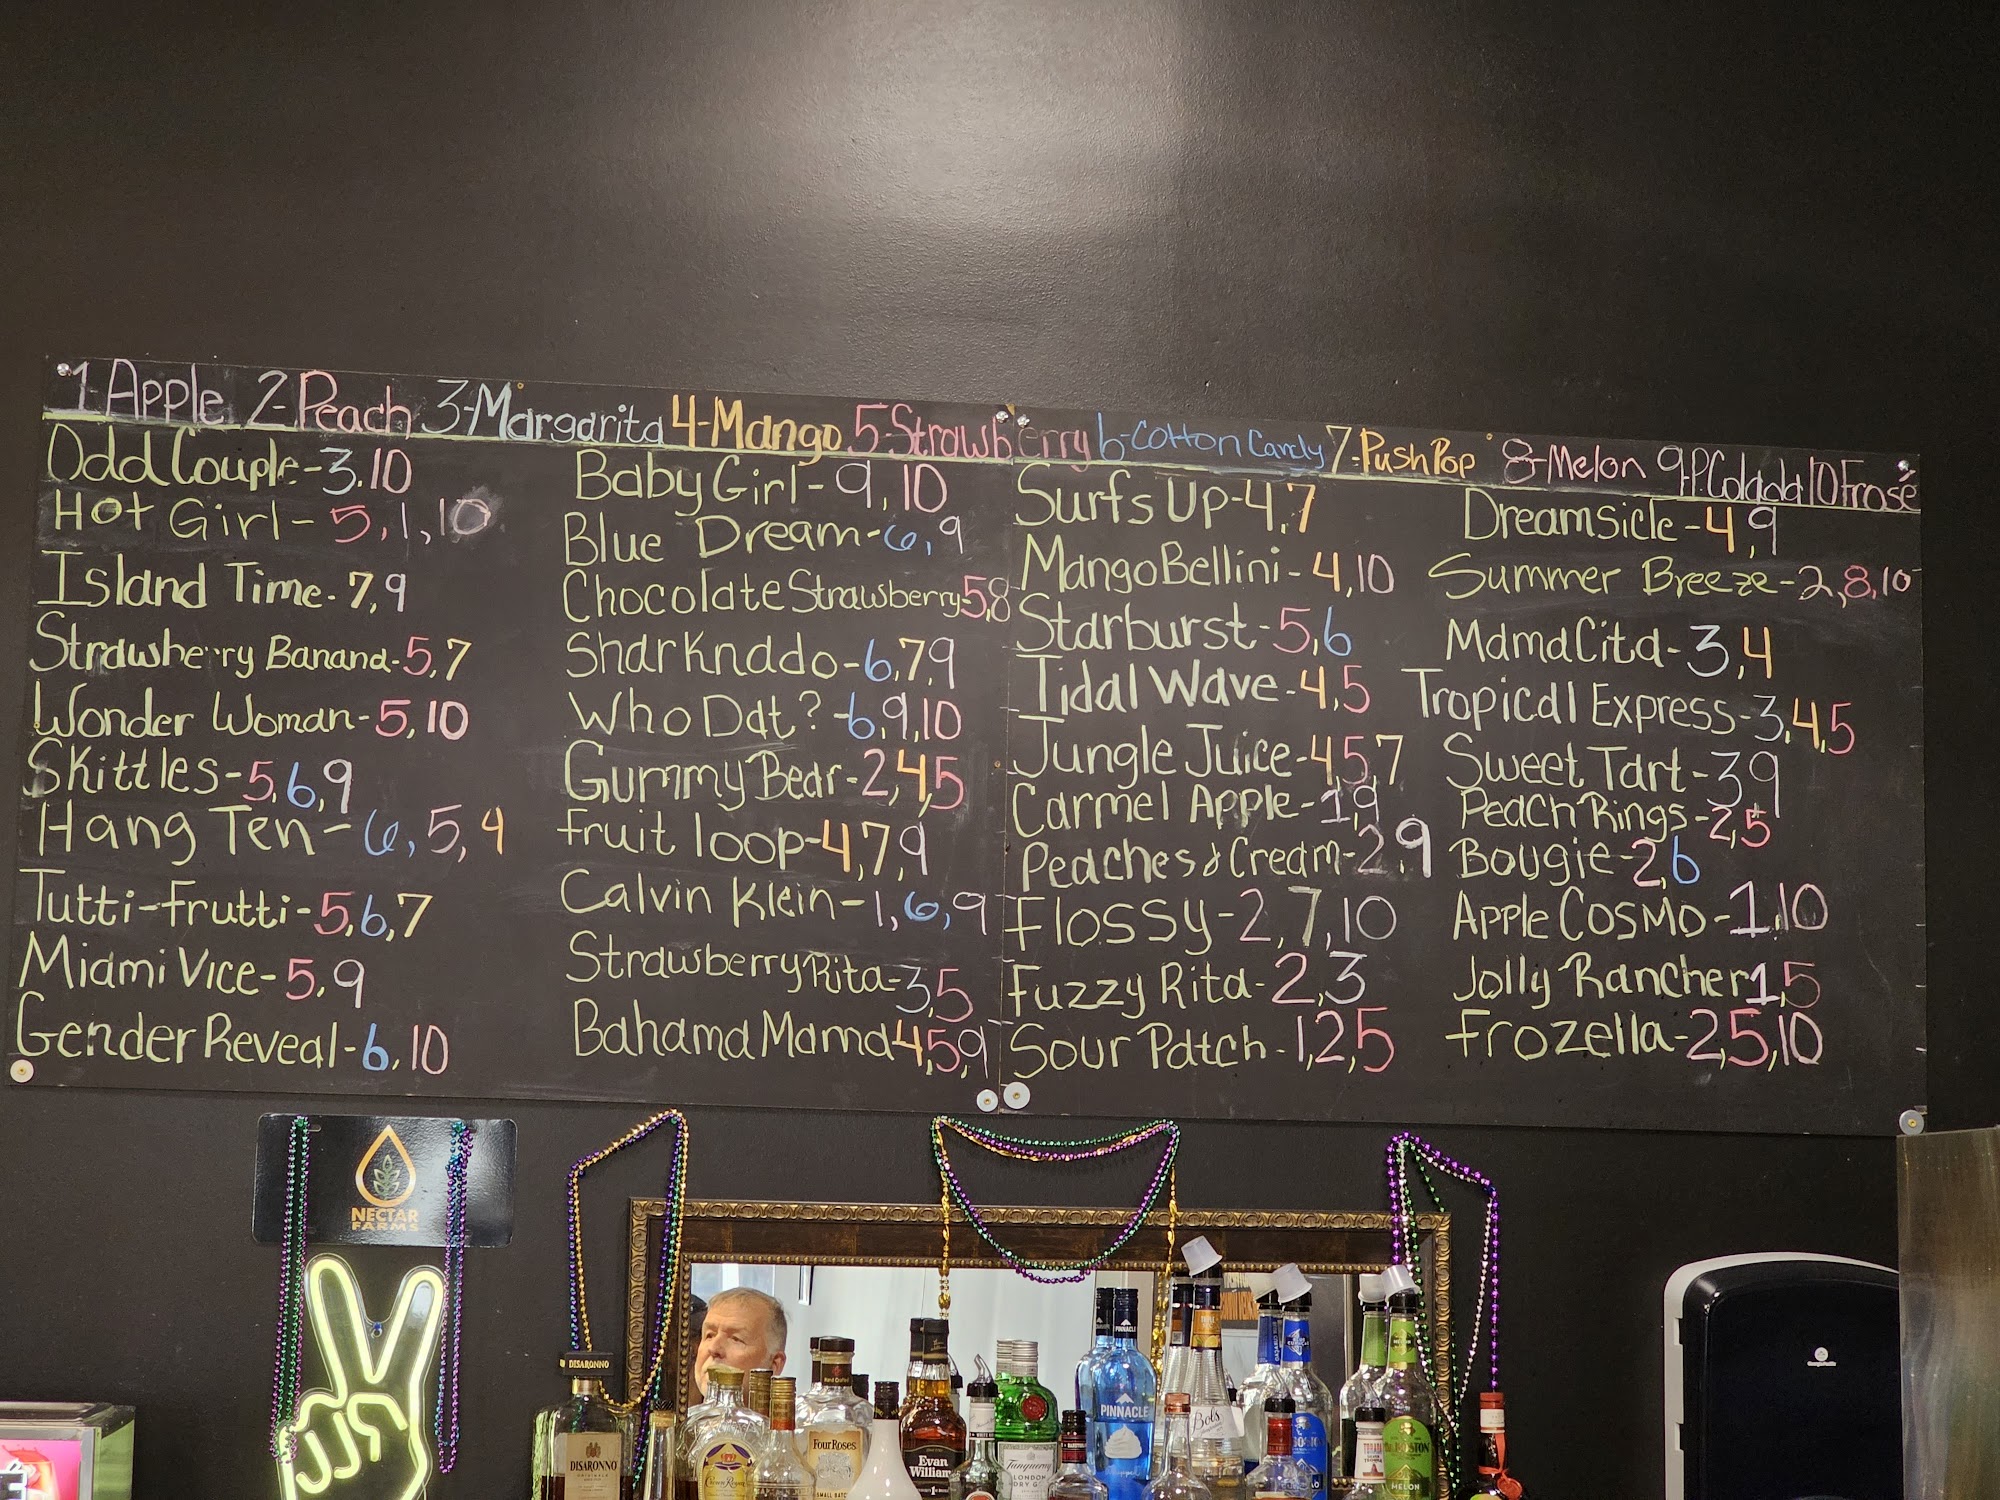 1 Apple 2-Peach 3-Margarita 4-Mango 5-Strawberry 6-Cotton Candy 7-PushPop 8-Melon 9-P.Colada 10 Frosé
Odd Couple-3.10
Hot Girl-5,1,10
Island Time-7,9
Strawberry Banana-5,7
Wonder Woman-5,10
Skittles-5,6,9
Hang Ten-6,5,4
Tutti-Frutti-5,6,7
Miami Vice-5,9
Gender Reveal-6,10
Baby Girl-9,10
Blue Dream-6,9
Chocolate Strawberry-5,8
Sharknado-6,7,9
Who Dat?-6,9,10
Gummy Bear-2,4,5
Fruit loop-4,7,9
Calvin Klein-1,6,9
Strawberry Rita-3,5
Bahama Mama 4,5,9
Surfs Up-4,7
Mango Bellini-4,10
Starburst-5,6
Tidal Wave-4,5
Jungle Juice-4,5,7
Carmel Apple-1,9
Peaches & Cream-2,9
Flossy-2,7,10
Fuzzy Rita-2,3
Sour Patch-1,2,5
Dreamsicle-4,9
Summer Breeze-2,8,10
MamaCita-3,4
Tropical Express-3,4,5
Sweet Tart-3,9
Peach Rings-2,5
Bougie-2,6
Apple Cosmo-1,10
Jolly Rancher 1,5
Frozella-2,5,10
NECTAR
FARMS
DISARONNO
DISARONNO
ORIGINALE
Crown Royal
Four Roses
SMALL BATCH
Evan
Williams
Tanqueray
LONDON
DRY
PINNACLE
PINNACLE
Bols
MELON